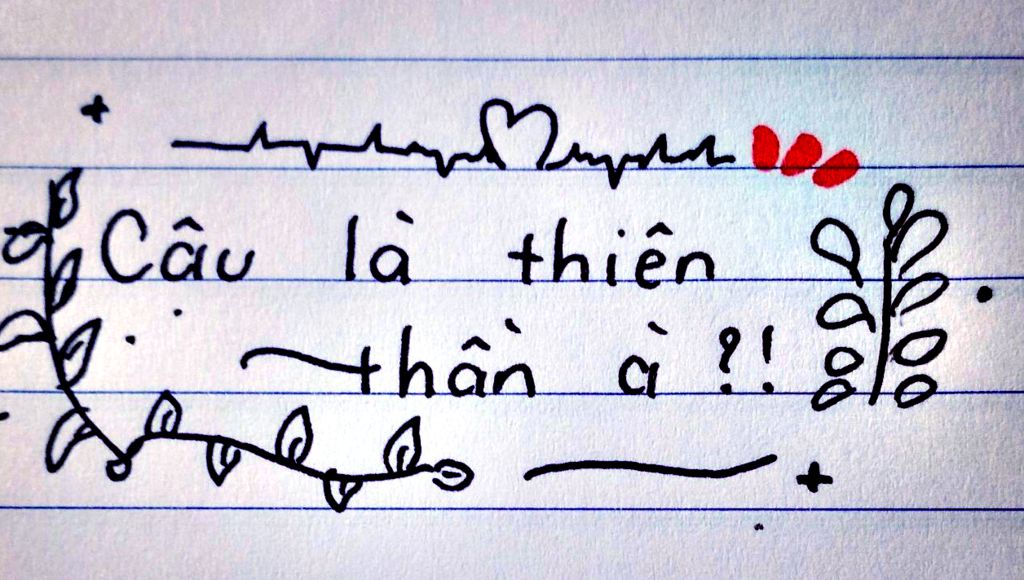 Câu là thiên
thần à ?!